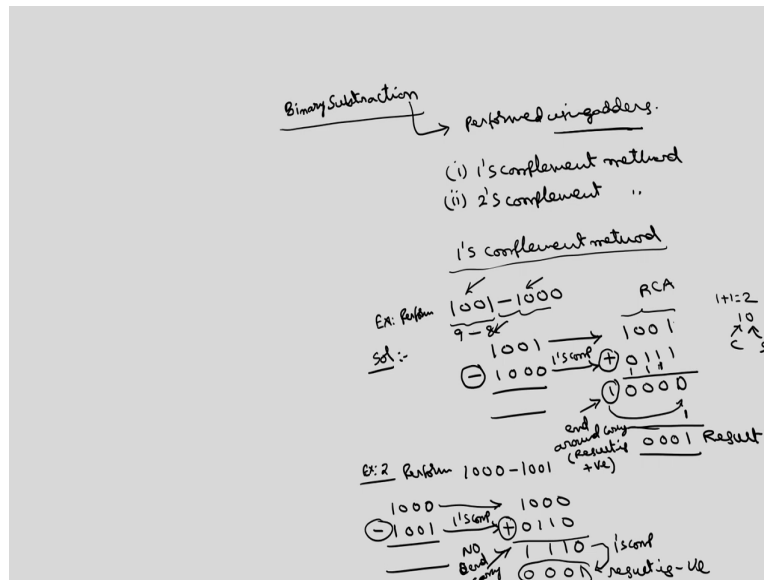 Binary Subtraction
Performed using adders.
(i) 1's complement method
(ii) 2's complement "
1's complement method
Ex: Perform 1001 - 1000
9 - 8
RCA
1+1=2
10
C S
Sol:-
1001 1001
- 1000 1's comp + 0111
111
1 0000
1
end around carry (Result is +ve)
0001 Result
Ex: 2 Perform 1000-1001
1000 1000
- 1001 1's comp. + 0110
NO end carry
1110 1's comp
0001 result is -ve